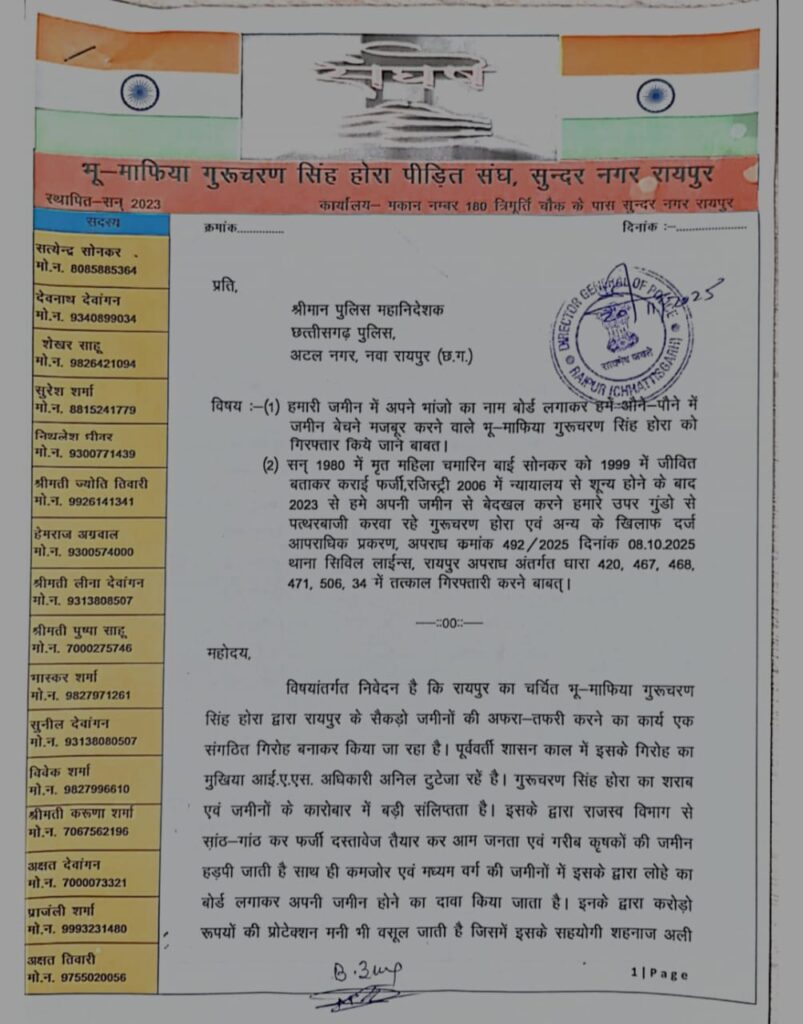 संघर्ष
भू–माफिया गुरूचरण सिंह होरा पीड़ित संघ, सुन्दर नगर रायपुर
स्थापित–सन् 2023
कार्यालय– मकान नम्बर 180 त्रिमूर्ति चौक के पास सुन्दर नगर रायपुर
सदस्य
सत्येन्द्र सोनकर
मो.न. 8085885364
देवनाथ देवांगन
मो.न. 9340899034
शेखर साहू
मो.न. 9826421094
सुरेश शर्मा
मो.न. 8815241779
मिथलेश धीवर
मो.न. 9300771439
श्रीमती ज्योति तिवारी
मो.न. 9926141341
हेमराज अग्रवाल
मो.न. 9300574000
श्रीमती लीना देवांगन
मो.न. 9313808507
श्रीमती पुष्पा साहू
मो.न. 7000275746
भास्कर शर्मा
मो.न. 9827971261
सुनील देवांगन
मो.न. 93138080507
विवेक शर्मा
मो.न. 9827996610
श्रीमती करूणा शर्मा
मो.न. 7067562196
अक्षत देवांगन
मो.न. 7000073321
प्राजंली शर्मा
मो.न. 9993231480
अक्षत तिवारी
मो.न. 9755020056
क्रमांक..............
दिनांक :–......................
प्रति,
श्रीमान पुलिस महानिदेशक
छत्तीसगढ़ पुलिस,
अटल नगर, नवा रायपुर (छ.ग.)
DIRECTOR GENERAL OF POLICE
सत्यमेव जयते
RAIPUR (CHHATTISGARH)
विषय :–(1) हमारी जमीन में अपने भांजो का नाम बोर्ड लगाकर हमें औने–पौने में
जमीन बेचने मजबूर करने वाले भू–माफिया गुरूचरण सिंह होरा को
गिरफ्तार किये जाने बाबत।
(2) सन् 1980 में मृत महिला चमारिन बाई सोनकर को 1999 में जीवित
बताकर कराई फर्जी,रजिस्ट्री 2006 में न्यायालय से शून्य होने के बाद
2023 से हमे अपनी जमीन से बेदखल करने हमारे उपर गुंडो से
पत्थरबाजी करवा रहे गुरूचरण होरा एवं अन्य के खिलाफ दर्ज
आपराधिक प्रकरण, अपराध कमांक 492/2025 दिनांक 08.10.2025
थाना सिविल लाईन्स, रायपुर अपराध अंतर्गत धारा 420, 467, 468,
471, 506, 34 में तत्काल गिरफ्तारी करने बाबत्।
––::00::––
महोदय,
विषयांतर्गत निवेदन है कि रायपुर का चर्चित भू–माफिया गुरूचरण
सिंह होरा द्वारा रायपुर के सैकड़ो जमीनों की अफरा–तफरी करने का कार्य एक
संगठित गिरोह बनाकर किया जा रहा है। पूर्ववर्ती शासन काल में इसके गिरोह का
मुखिया आई.ए.एस. अधिकारी अनिल टुटेजा रहें है। गुरूचरण सिंह होरा का शराब
एवं जमीनों के कारोबार में बड़ी संलिप्तता है। इसके द्वारा राजस्व विभाग से
सांठ–गांठ कर फर्जी दस्तावेज तैयार कर आम जनता एवं गरीब कृषकों की जमीन
हड़पी जाती है साथ ही कमजोर एवं मध्यम वर्ग की जमीनों में इसके द्वारा लोहे का
बोर्ड लगाकर अपनी जमीन होने का दावा किया जाता है। इनके द्वारा करोड़ो
रूपयों की प्रोटेक्शन मनी भी वसूल जाती है जिसमें इसके सहयोगी शहनाज अली
1 | P a g e